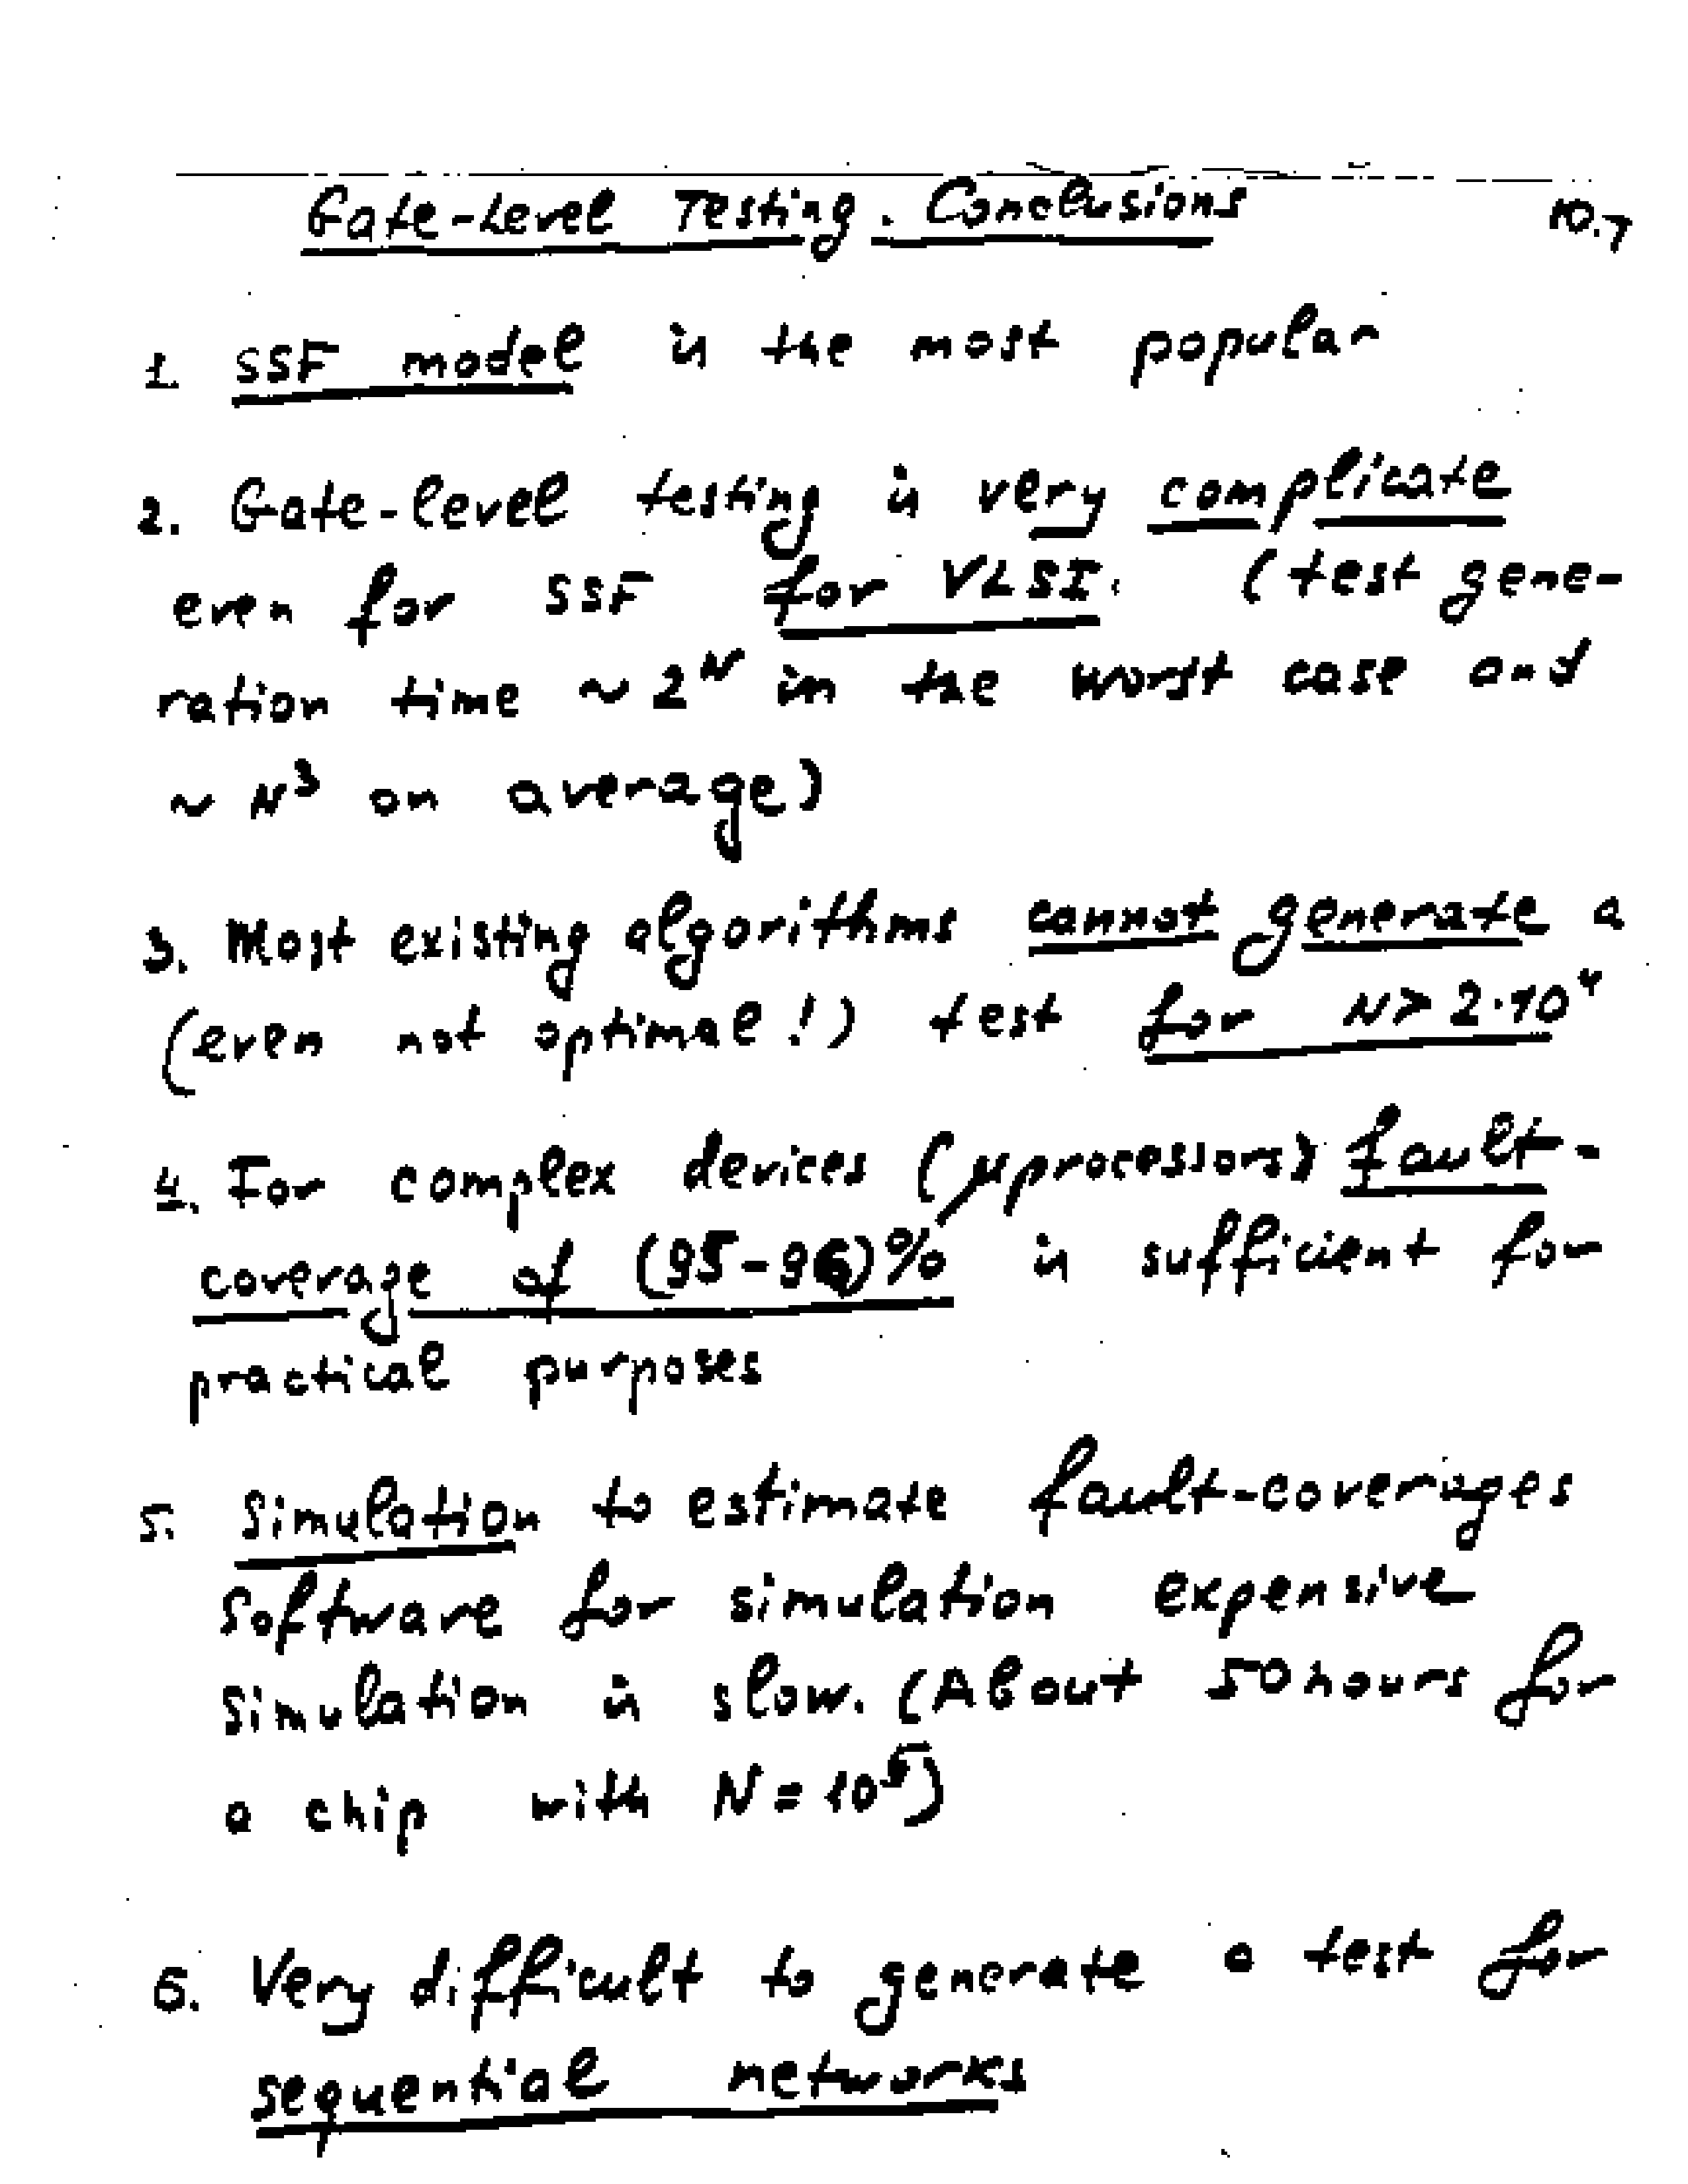 Gate-Level Testing. Conclusions 10.7
1. SSF model is the most popular
2. Gate-level testing is very complicate
even for SSF for VLSI. (test gene-
ration time ~ 2^N in the worst case and
~ N^3 on average)
3. Most existing algorithms cannot generate a
(even not optimal!) test for N > 2·10^4
4. For complex devices (μprocessors) fault-
coverage of (95-96)% is sufficient for
practical purposes
5. Simulation to estimate fault-coverages
Software for simulation expensive
Simulation is slow. (About 50 hours for
a chip with N = 10^5)
6. Very difficult to generate a test for
sequential networks